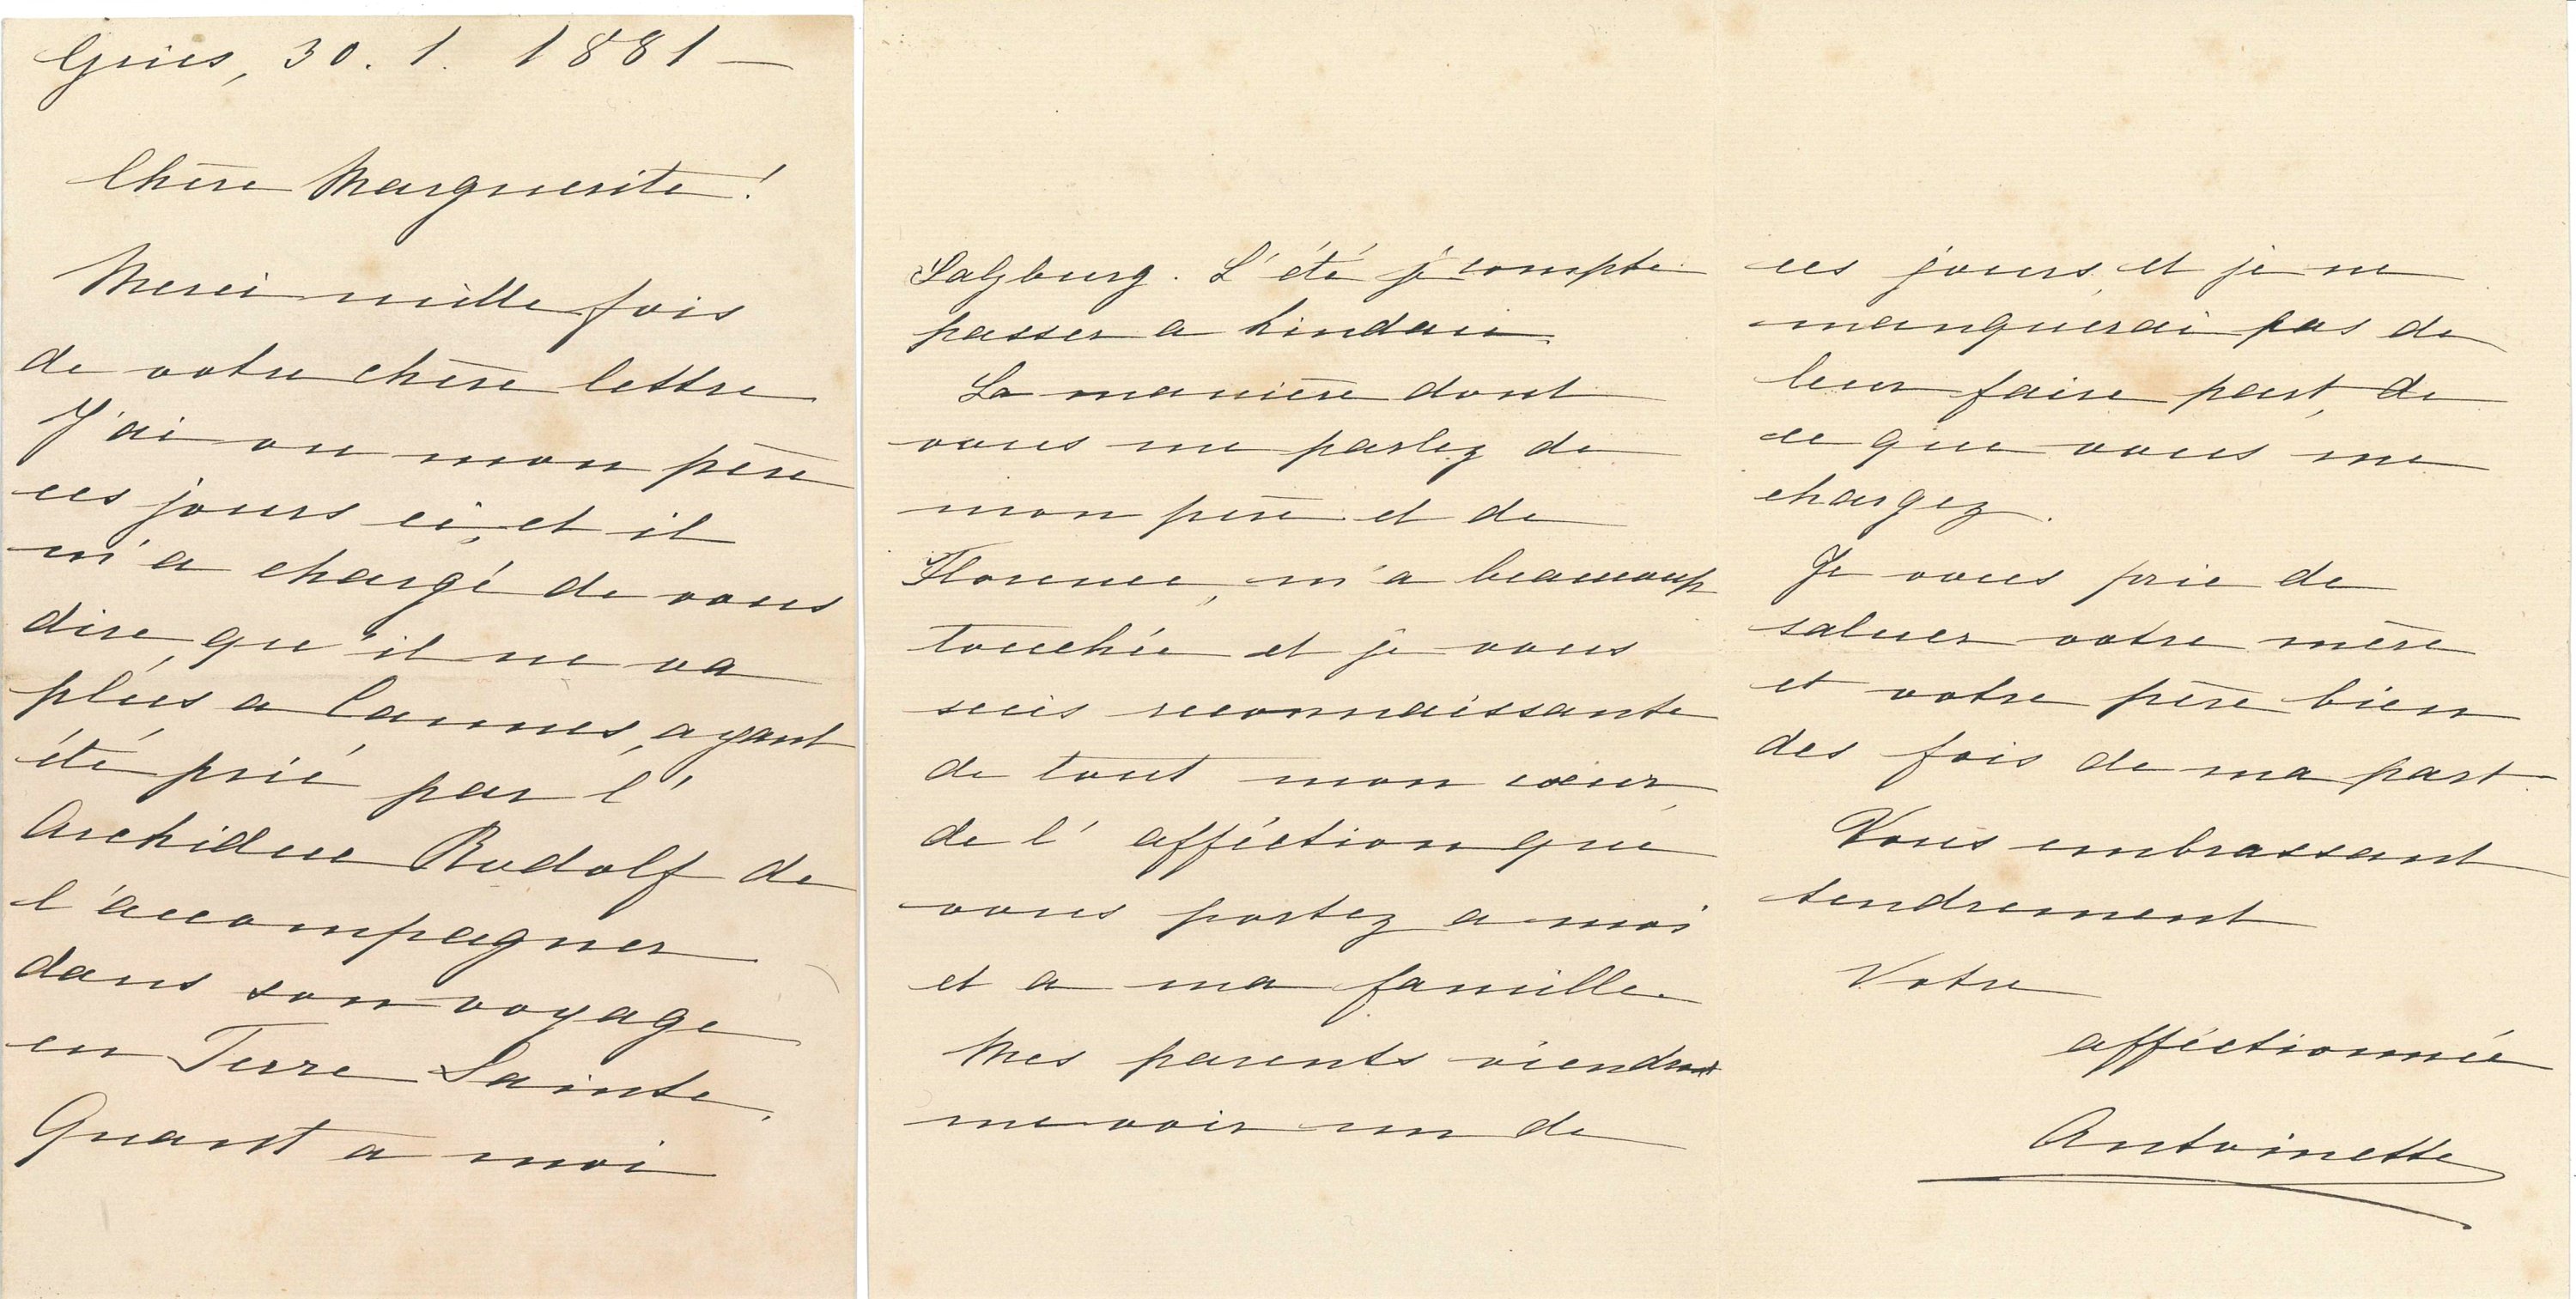 Gries, 30. 1. 1881 —
Chère Marguerite!
Merci mille fois
de votre chère lettre
J'ai vu mon père
ces jours ci, et il
m'a chargé de vous
dire, qu'il ne va
plus a Cannes, ayant
été prié par l'
Archiduc Rudolf de
l'accompagner
dans son voyage
en Terre Sainte.
Quant a moi
Salzburg. L'été je compte
passer a Lindau.
La manière dont
vous me parlez de
mon père et de
Florence, m'a beaucoup
touchée et je vous
suis reconnaissante
de tout mon cœur,
de l' afféction que
vous portez a moi
et a ma famille.
Mes parents viendront
me voir un de
ces jours, et je ne
manquerai pas de
leur faire part, de
ce que vous me
chargez.
Je vous prie de
saluer votre mère
et votre père bien
des fois de ma part.
Vous embrassant
tendrement
Votre
afféctionnée
Antoinette